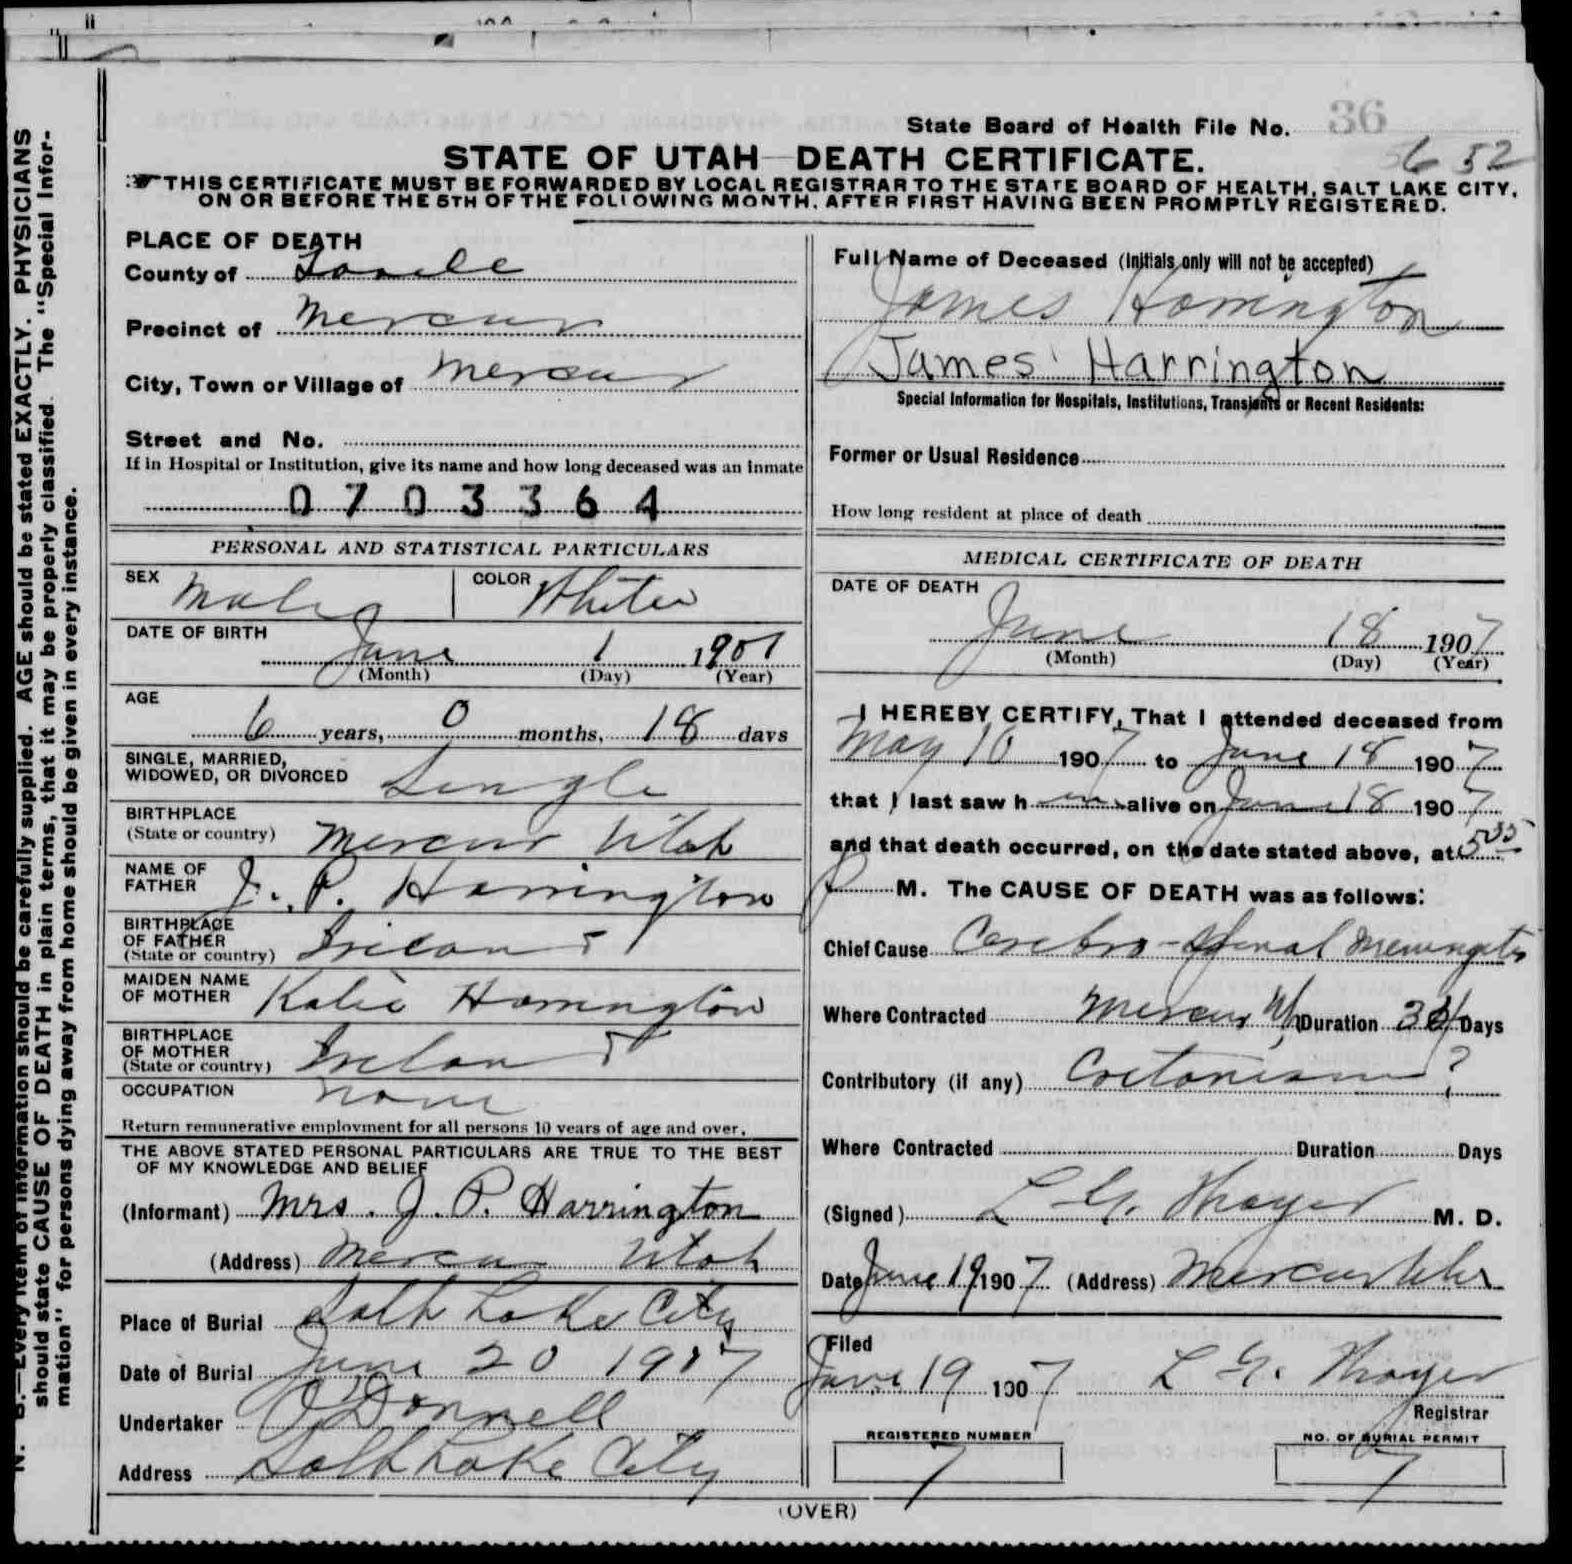 State Board of Health File No. 36
652
STATE OF UTAH—DEATH CERTIFICATE.
THIS CERTIFICATE MUST BE FORWARDED BY LOCAL REGISTRAR TO THE STATE BOARD OF HEALTH, SALT LAKE CITY,
ON OR BEFORE THE 5TH OF THE FOLLOWING MONTH, AFTER FIRST HAVING BEEN PROMPTLY REGISTERED.
N. B.—Every item of information should be carefully supplied. AGE should be stated EXACTLY. PHYSICIANS
should state CAUSE OF DEATH in plain terms, that it may be properly classified. The "Special Infor-
mation" for persons dying away from home should be given in every instance.
PLACE OF DEATH
County of Tooele
Precinct of Mercur
City, Town or Village of Mercur
Street and No.
If in Hospital or Institution, give its name and how long deceased was an inmate
0703364
PERSONAL AND STATISTICAL PARTICULARS
SEX Male COLOR White
DATE OF BIRTH
June 1 1901
(Month) (Day) (Year)
AGE
6 years, 0 months, 18 days
SINGLE, MARRIED,
WIDOWED, OR DIVORCED Single
BIRTHPLACE
(State or country) Mercur Utah
NAME OF
FATHER J. P. Harrington
BIRTHPLACE
OF FATHER
(State or country) Ireland
MAIDEN NAME
OF MOTHER Katie Harrington
BIRTHPLACE
OF MOTHER
(State or country) Ireland
OCCUPATION None
Return remunerative employment for all persons 10 years of age and over.
THE ABOVE STATED PERSONAL PARTICULARS ARE TRUE TO THE BEST
OF MY KNOWLEDGE AND BELIEF
(Informant) Mrs. J. P. Harrington
(Address) Mercur Utah
Place of Burial Salt Lake City
Date of Burial June 20 1907
Undertaker O'Donnell
Address Salt Lake City
Full Name of Deceased (Initials only will not be accepted)
James Harrington
James Harrington
Special Information for Hospitals, Institutions, Transients or Recent Residents:
Former or Usual Residence
How long resident at place of death
MEDICAL CERTIFICATE OF DEATH
DATE OF DEATH
June 18 1907
(Month) (Day) (Year)
I HEREBY CERTIFY, That I attended deceased from
May 10 1907 to June 18 1907
that I last saw h im alive on June 18 1907
and that death occurred, on the date stated above, at 5 35
P M. The CAUSE OF DEATH was as follows:
Chief Cause Cerebro-Spinal Meningitis
Where Contracted Mercur Duration Days
Contributory (if any) ?
Where Contracted Duration Days
(Signed) L G. Thayer M. D.
Date June 19 1907 (Address) Mercur Utah
Filed
June 19 1907 L G. Thayer
Registrar
REGISTERED NUMBER
7
NO. OF BURIAL PERMIT
7
(OVER)